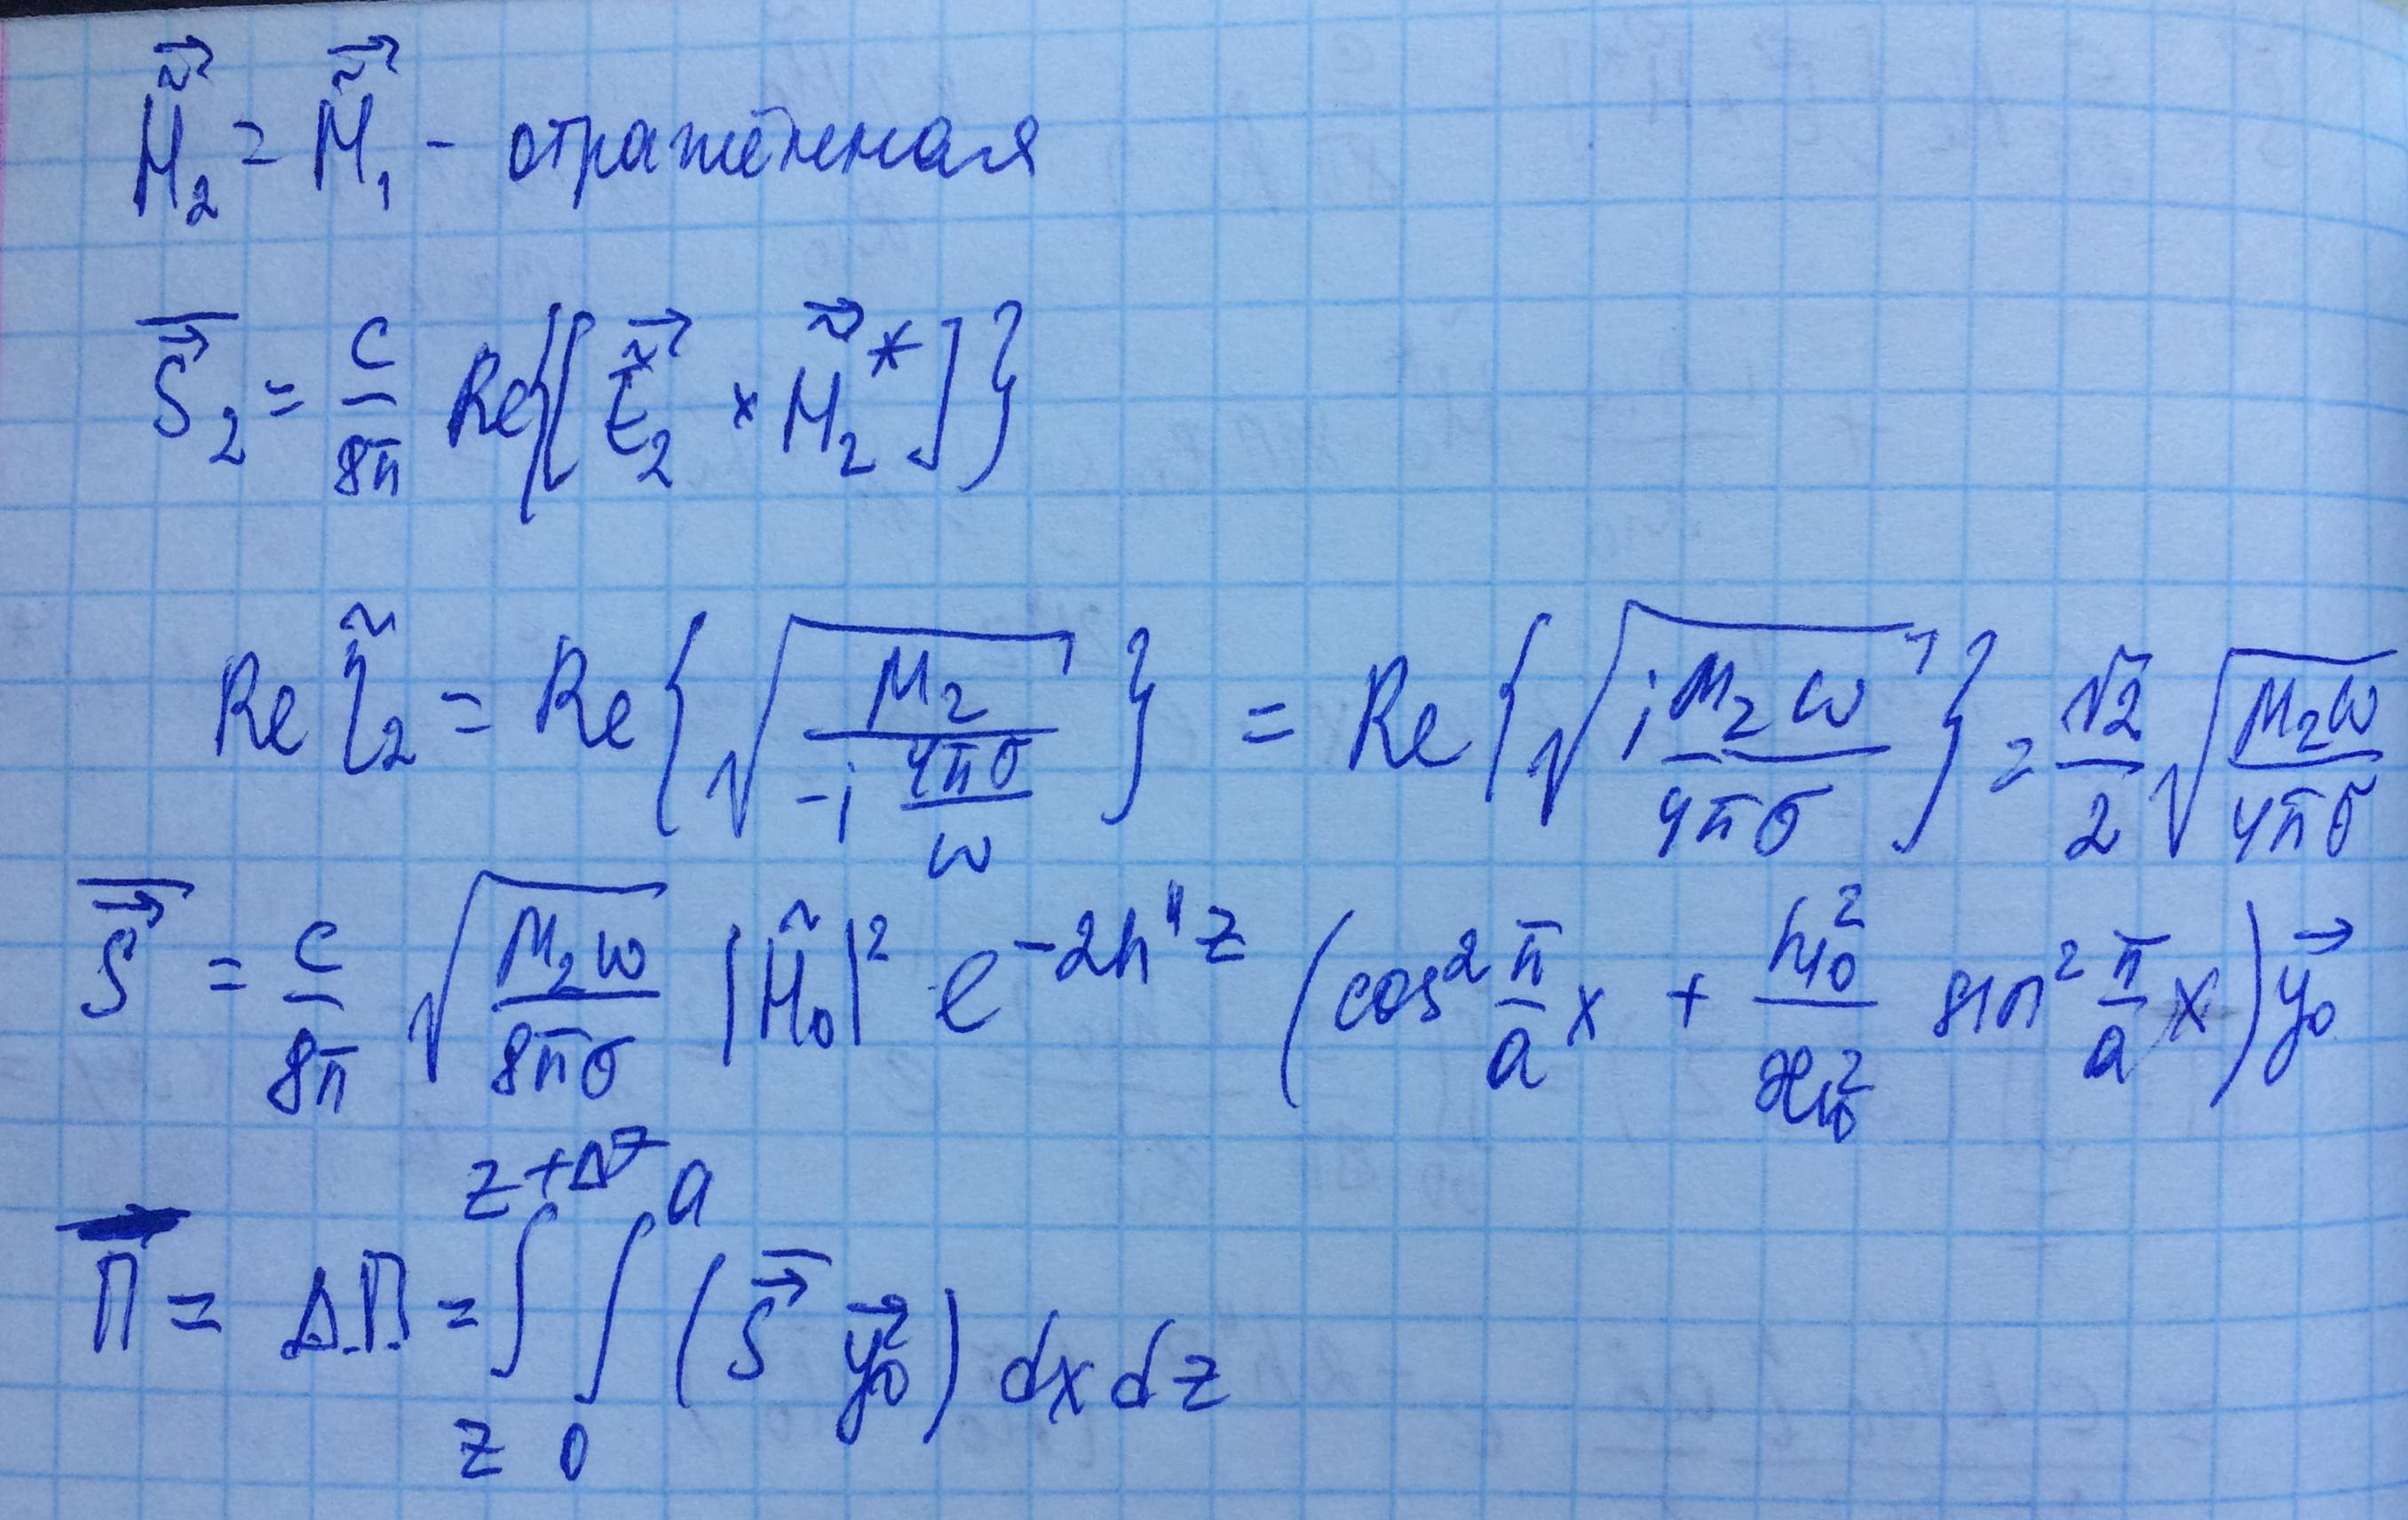 $\vec{\tilde{H}}_2 = \vec{\tilde{H}}_1$ - отражённая
$\overline{\vec{S}}_2 = \frac{c}{8\pi} Re\{[\vec{\tilde{E}}_2 \times \vec{\tilde{H}}_2^*]\}$
$Re\,\tilde{\eta}_2 = Re\left\{\sqrt{\frac{\mu_2}{-i\frac{4\pi\sigma}{\omega}}}\right\} = Re\left\{\sqrt{i\frac{\mu_2\omega}{4\pi\sigma}}\right\} = \frac{\sqrt{2}}{2}\sqrt{\frac{\mu_2\omega}{4\pi\sigma}}$
$\overline{\vec{S}} = \frac{c}{8\pi}\sqrt{\frac{\mu_2\omega}{8\pi\sigma}}\,|\tilde{H}_0|^2 e^{-2h''z}\left(\cos^2\frac{\pi}{a}x + \frac{h_{10}^2}{\varkappa_{10}^2}\sin^2\frac{\pi}{a}x\right)\vec{y}_0$
$\overline{\Pi} = \Delta\Pi = \int_{z}^{z+\Delta z}\int_{0}^{a}(\overline{\vec{S}}\,\vec{y}_0)\,dx\,dz$